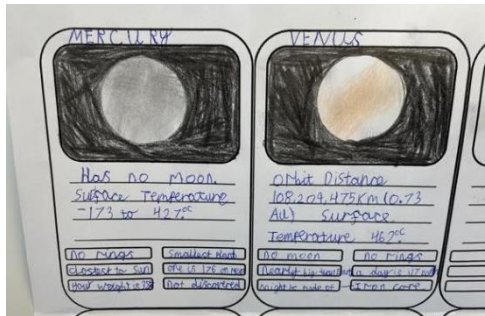 MERCURY
Has no moon.
Surface Temperature
-173 to 427°c
no rings
Smallest
closest to Sun
one is 176
not discovered
VENUS
Orbit Distance
108,209,475Km (0.73
AU) Surface
Temperature 462°c
no moon
no rings
Nearly
a day is 117
might be made of
Iron core.